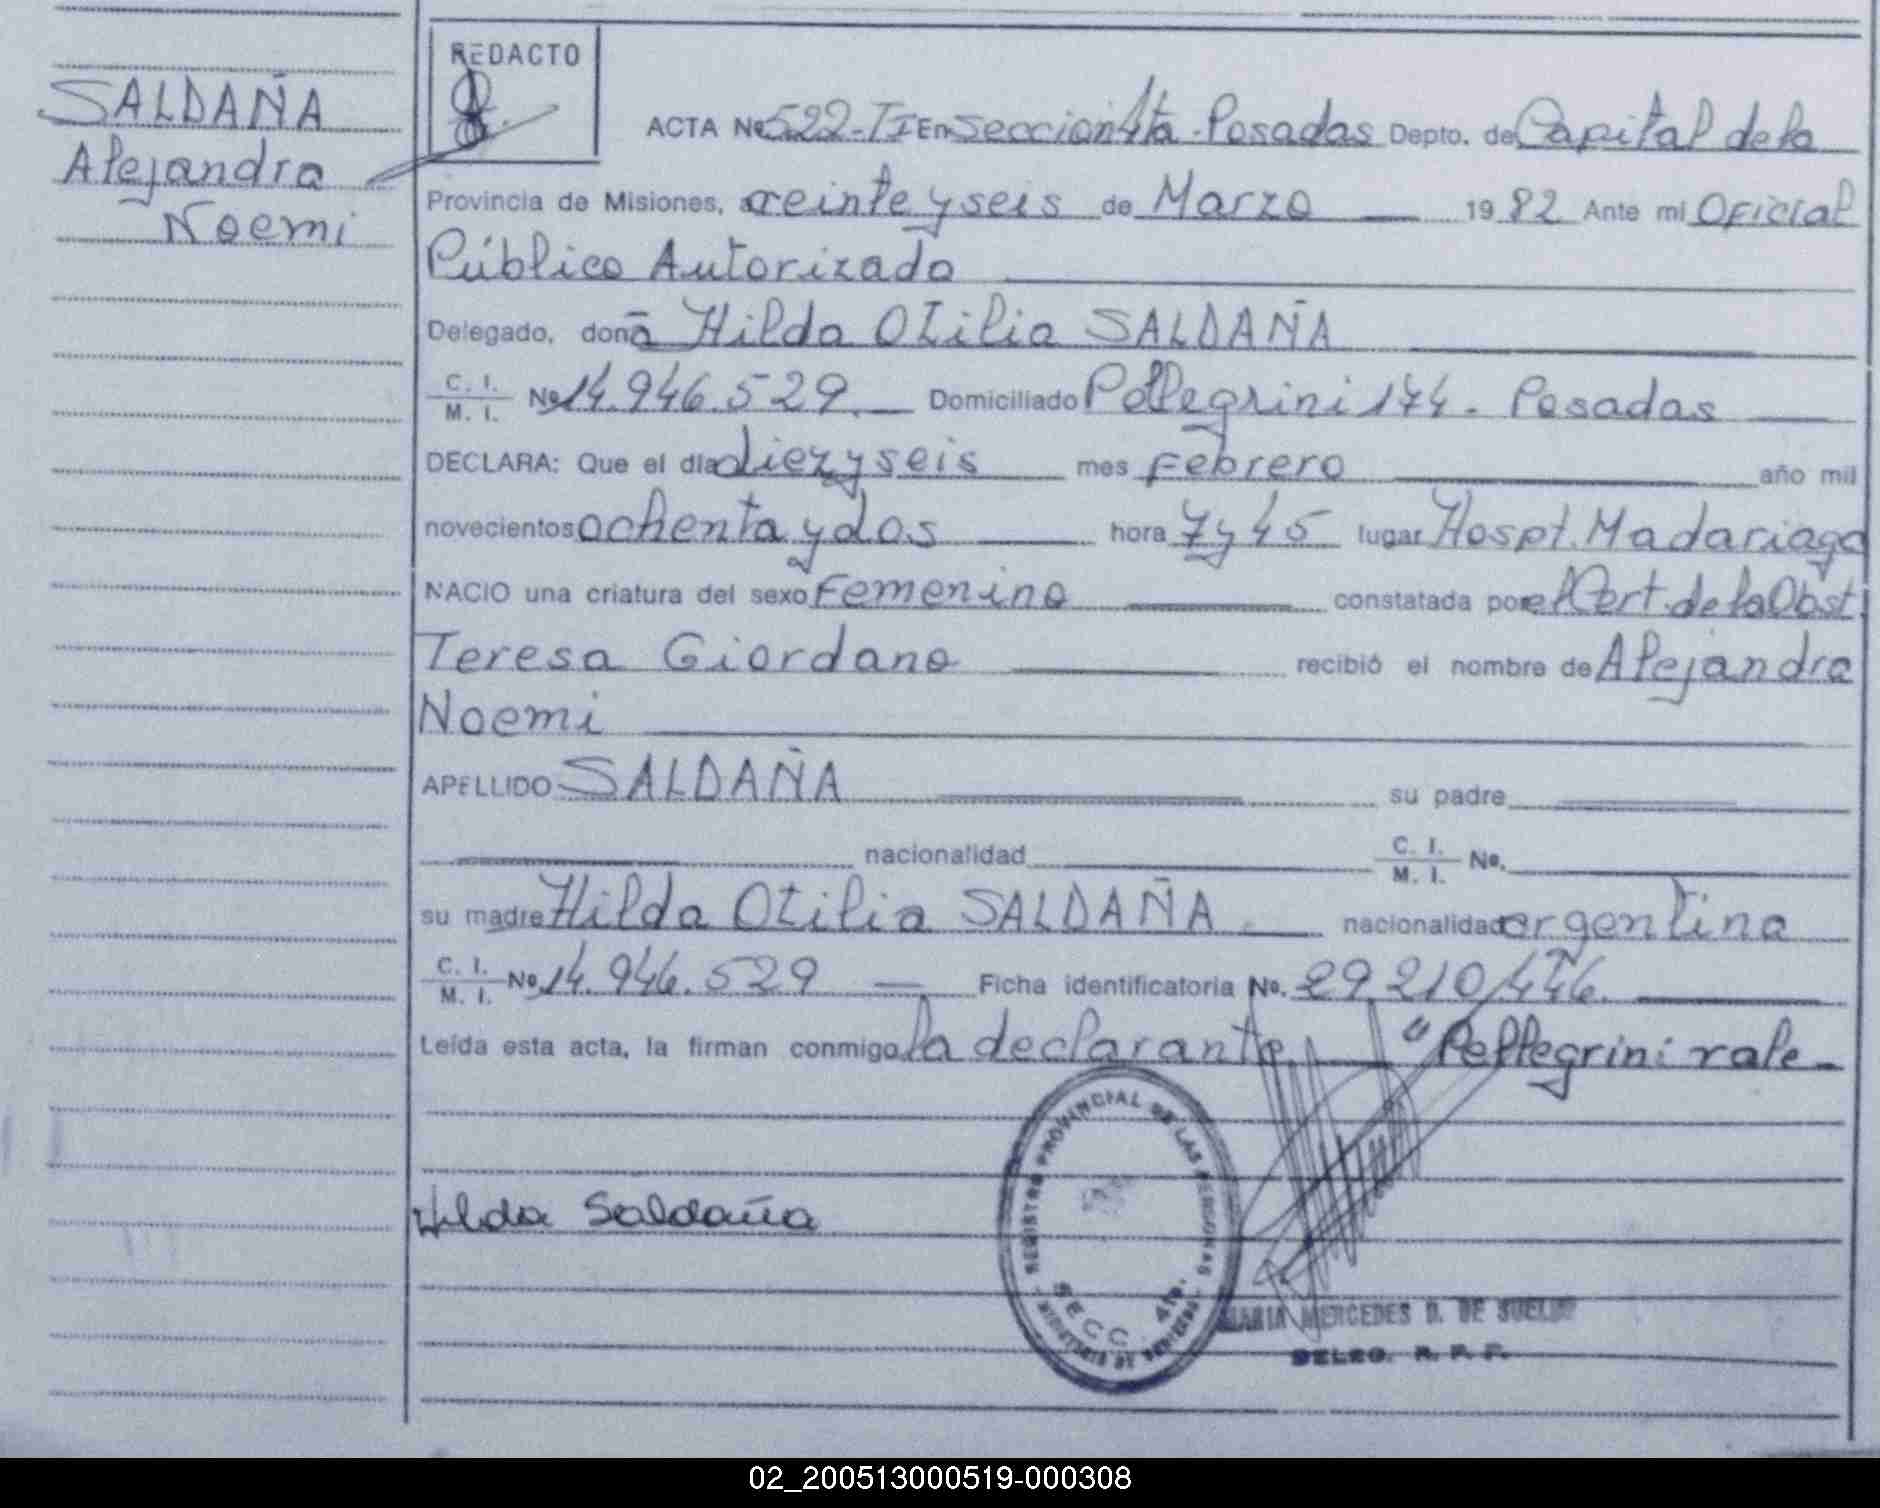 SALDAÑA
Alejandra
Noemi
REDACTO
ACTA No 522-TI En Seccion 4ta - Posadas Depto. de Capital de la
Provincia de Misiones, a veinte y seis de Marzo 1982 Ante mi Oficial
Público Autorizado
Delegado, doña Hilda Otilia SALDAÑA
C. I.
M. I. No 14.946.529. Domiciliado Pellegrini 174 - Posadas
DECLARA: Que el día diez y seis mes Febrero año mil
novecientos ochenta y dos hora 7 y 45 lugar Hospt. Madariaga
NACIO una criatura del sexo Femenino constatada por el Cert. de la Obst.
Teresa Giordano recibió el nombre de Alejandra
Noemi
APELLIDO SALDAÑA su padre
nacionalidad C. I.
M. I. No.
su madre Hilda Otilia SALDAÑA. nacionalidad argentina
C. I.
M. I. No 14.946.529 Ficha identificatoria No. 29.210/446.
Leída esta acta, la firman conmigo la declarante "Pellegrini vale -
Hilda Saldaña
REGISTRO PROVINCIAL DE LAS PERSONAS
SECC. 4ta.
MINISTERIO DE
MARIA MERCEDES D. DE
DELEG. R. P. P.
02_200513000519-000308